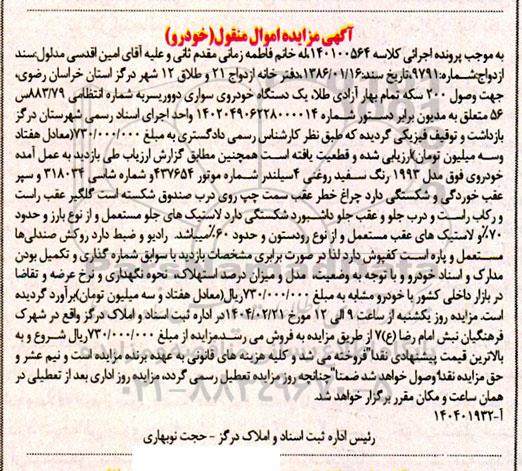 آگهی مزایده اموال منقول(خودرو)
به موجب پرونده اجرائی کلاسه ۱۴۰۱۰۰۵۶۴،له خانم فاطمه زمانی مقدم ثانی و علیه آقای امین اقدسی مدلول:سند
ازدواج:شماره:۹۷۹۱،تاریخ سند:۱۳۸۶/۰۱/۱۶،دفتر خانه ازدواج ۲۱ و طلاق ۱۲ شهر درگز استان خراسان رضوی،
جهت وصول ۲۰۰ سکه تمام بهار آزادی طلا، یک دستگاه خودروی سواری دوو:ریسر:به شماره انتظامی ۸۸۳/۷۹س
۵۶ متعلق به مدیون برابر دستور شماره ۱۴۰۲۰۴۹۰۶۲۲۸۰۰۰۰۱۴ واحد اجرای اسناد رسمی شهرستان درگز
بازداشت و توقیف فیزیکی گردیده که طبق نظر کارشناس رسمی دادگستری به مبلغ ۷۳۰/۰۰۰/۰۰۰(معادل هفتاد
وسه میلیون تومان)ارزیابی شده و قطعیت یافته است همچنین مطابق گزارش ارزیاب طی بازدید به عمل آمده
خودروی فوق مدل ۱۹۹۳ رنگ سفید روغنی ۴سیلندر شماره موتور ۴۳۷۶۵۴و شماره شاسی ۳۱۸۰۳۴ و سپر
عقب خوردگی و شکستگی دارد چراغ خطر عقب سمت چپ روی درب صندوق شکسته است گلگیر عقب راست
و رکاب راست و درب جلو و عقب جلو داشبورد شکستگی دارد لاستیک های جلو مستعمل و از نوع بارز و حدود
۷۰٪و لاستیک های عقب مستعمل و از نوع رودستون و حدود ۶۰٪میباشد. رادیو و ضبط دارد روکش صندلی‌ها
مستعمل و پاره است کفپوش دارد لذا در صورت برابری مشخصات بازدید با سوابق شماره گذاری و تکمیل بودن
مدارک و اسناد خودرو و با توجه به وضعیت، مدل و میزان درصد استهلاک، نحوه نگهداری و نرخ عرضه و تقاضا
در بازار داخلی کشور با خودرو مشابه به مبلغ ۷۳۰/۰۰۰/۰۰۰ریال(معادل هفتاد و سه میلیون تومان)برآورد گردیده
است. مزایده روز یکشنبه از ساعت ۹ الی ۱۲ مورخ ۱۴۰۴/۰۲/۲۱در اداره ثبت اسناد و املاک درگز واقع در شهرک
فرهنگیان نبش امام رضا (ع)۷ از طریق مزایده به فروش می رسد.مزایده از مبلغ ۷۳۰/۰۰۰/۰۰۰ریال شروع و به
بالاترین قیمت پیشنهادی نقدا"فروخته می شد و کلیه هزینه های قانونی به عهده برنده مزایده است و نیم عشر و
حق مزایده نقدا"وصول خواهد شد ضمنا"چنانچه روز مزایده تعطیل رسمی گردد، مزایده روز اداری بعد از تعطیلی در
همان ساعت و مکان مقرر برگزار خواهد شد.
آ-۱۴۰۴۰۱۹۳۲
رئیس اداره ثبت اسناد و املاک درگز - حجت نوبهاری